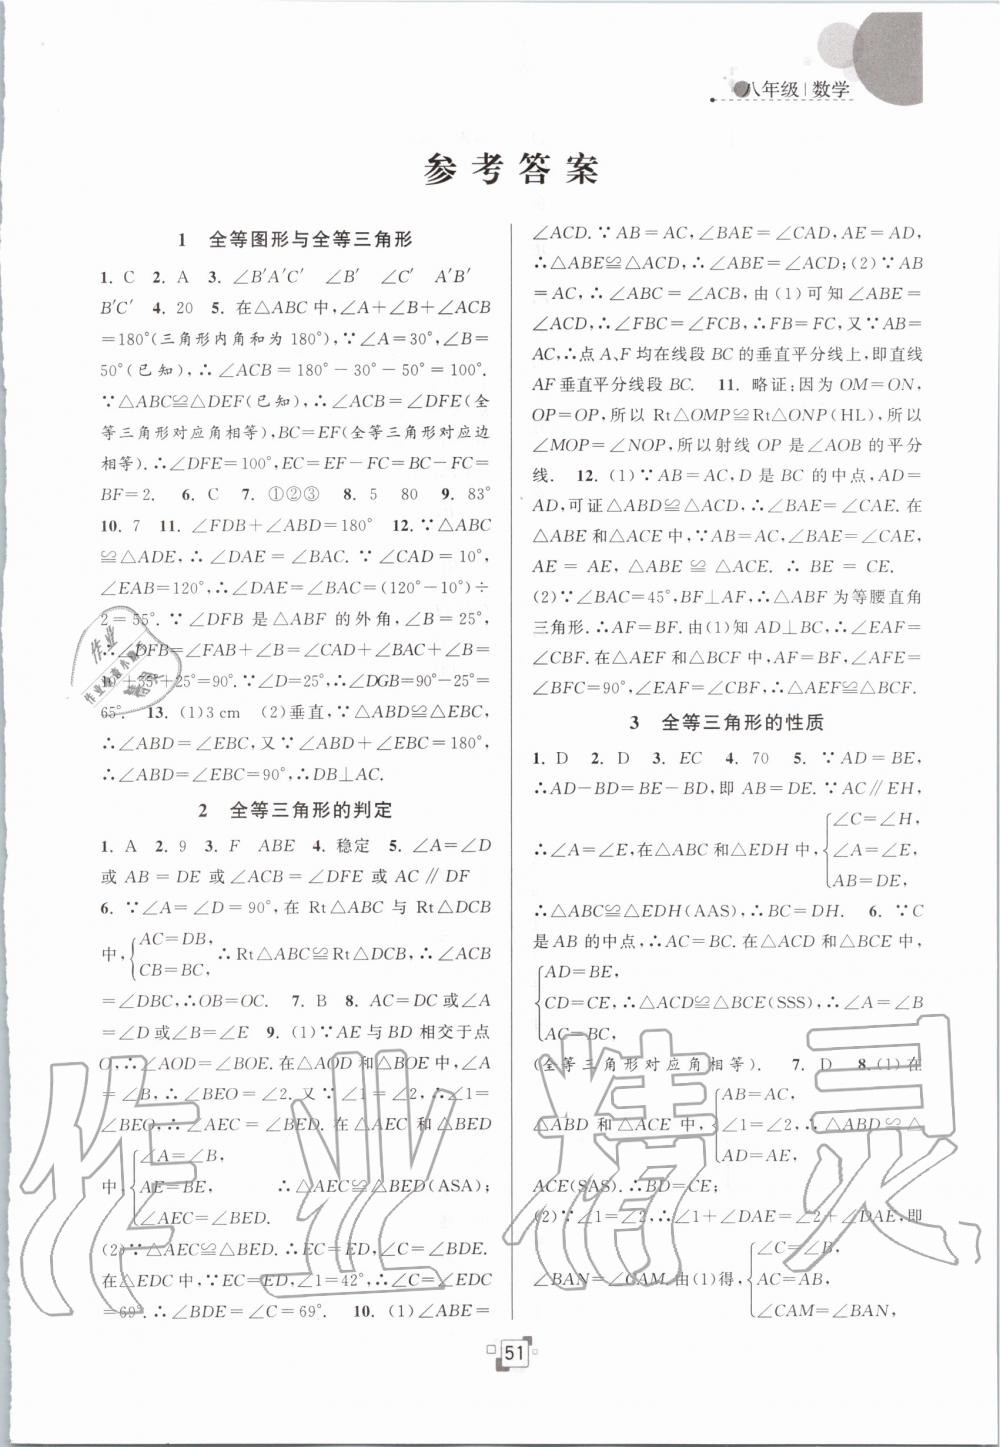 八年级|数学
参考答案
1 全等图形与全等三角形
1. C 2. A 3. ∠B′A′C′ ∠B′ ∠C′ A′B′
B′C′ 4. 20 5. 在△ABC中,∠A+∠B+∠ACB
=180°(三角形内角和为180°),∵∠A=30°,∠B=
50°(已知),∴∠ACB=180°-30°-50°=100°.
∵△ABC≌△DEF(已知),∴∠ACB=∠DFE(全
等三角形对应角相等),BC=EF(全等三角形对应边
相等).∴∠DFE=100°,EC=EF-FC=BC-FC=
BF=2. 6. C 7. ①②③ 8. 5 80 9. 83°
10. 7 11. ∠FDB+∠ABD=180° 12. ∵△ABC
≌△ADE,∴∠DAE=∠BAC. ∵∠CAD=10°,
∠EAB=120°,∴∠DAE=∠BAC=(120°-10°)÷
2=55°. ∵∠DFB是△ABF的外角,∠B=25°,
∴∠DFB=∠FAB+∠B=∠CAD+∠BAC+∠B=
10°+55°+25°=90°. ∵∠D=25°,∴∠DGB=90°-25°=
65°. 13. (1)3 cm (2)垂直,∵△ABD≌△EBC,
∴∠ABD=∠EBC,又∵∠ABD+∠EBC=180°,
∴∠ABD=∠EBC=90°,∴DB⊥AC.
2 全等三角形的判定
1. A 2. 9 3. F ABE 4. 稳定 5. ∠A=∠D
或AB=DE或∠ACB=∠DFE或AC∥DF
6. ∵∠A=∠D=90°,在Rt△ABC与Rt△DCB
中,{AC=DB, CB=BC, ∴Rt△ABC≌Rt△DCB,∴∠ACB
=∠DBC,∴OB=OC. 7. B 8. AC=DC或∠A
=∠D或∠B=∠E 9. (1)∵AE与BD相交于点
O,∴∠AOD=∠BOE.在△AOD和△BOE中,∠A
=∠B,∴∠BEO=∠2.又∵∠1=∠2,∴∠1=
∠BEO,∴∠AEC=∠BED.在△AEC和△BED
中,{∠A=∠B, AE=BE, ∠AEC=∠BED. ∴△AEC≌△BED(ASA);
(2)∵△AEC≌△BED.∴EC=ED,∠C=∠BDE.
在△EDC中,∵EC=ED,∠1=42°,∴∠C=∠EDC
=69°.∴∠BDE=∠C=69°. 10. (1)∠ABE=
∠ACD.∵AB=AC,∠BAE=∠CAD,AE=AD,
∴△ABE≌△ACD,∴∠ABE=∠ACD;(2)∵AB
=AC,∴∠ABC=∠ACB,由(1)可知∠ABE=
∠ACD,∴∠FBC=∠FCB,∴FB=FC,又∵AB=
AC,∴点A、F均在线段BC的垂直平分线上,即直线
AF垂直平分线段BC. 11. 略证:因为OM=ON,
OP=OP,所以Rt△OMP≌Rt△ONP(HL),所以
∠MOP=∠NOP,所以射线OP是∠AOB的平分
线. 12. (1)∵AB=AC,D是BC的中点,AD=
AD,可证△ABD≌△ACD,∴∠BAE=∠CAE.在
△ABE和△ACE中,∵AB=AC,∠BAE=∠CAE,
AE=AE,△ABE≌△ACE.∴BE=CE.
(2)∵∠BAC=45°,BF⊥AF,∴△ABF为等腰直角
三角形.∴AF=BF.由(1)知AD⊥BC,∴∠EAF=
∠CBF.在△AEF和△BCF中,AF=BF,∠AFE=
∠BFC=90°,∠EAF=∠CBF,∴△AEF≌△BCF.
3 全等三角形的性质
1. D 2. D 3. EC 4. 70 5. ∵AD=BE,
∴AD-BD=BE-BD,即AB=DE.∵AC∥EH,
∴∠A=∠E,在△ABC和△EDH中,{∠C=∠H, ∠A=∠E, AB=DE,
∴△ABC≌△EDH(AAS),∴BC=DH. 6. ∵C
是AB的中点,∴AC=BC.在△ACD和△BCE中,
{AD=BE, CD=CE, AC=BC, ∴△ACD≌△BCE(SSS),∴∠A=∠B
(全等三角形对应角相等). 7. D 8. (1)在
△ABD和△ACE中,{AB=AC, ∠1=∠2, AD=AE, ∴△ABD≌△
ACE(SAS).∴BD=CE;
(2)∵∠1=∠2,∴∠1+∠DAE=∠2+∠DAE,即
∠BAN=∠CAM.由(1)得,{∠C=∠B, AC=AB, ∠CAM=∠BAN,
51
作业精灵